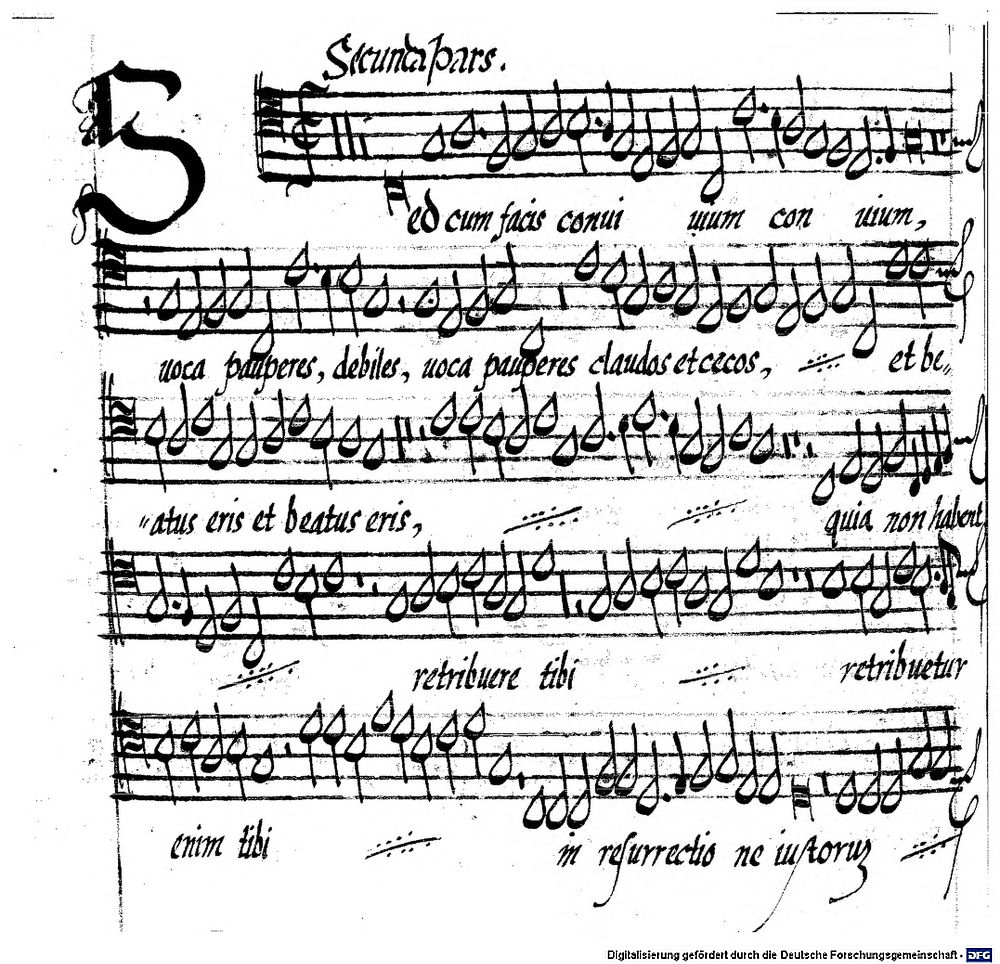 Secunda pars.
Sed cum facis conui uium con uium,
uoca pauperes, debiles, uoca pauperes claudos et cecos, et be„
„atus eris et beatus eris, quia non habent
retribuere tibi retribuetur
enim tibi in resurrectio ne iustorum
Digitalisierung gefördert durch die Deutsche Forschungsgemeinschaft - DFG